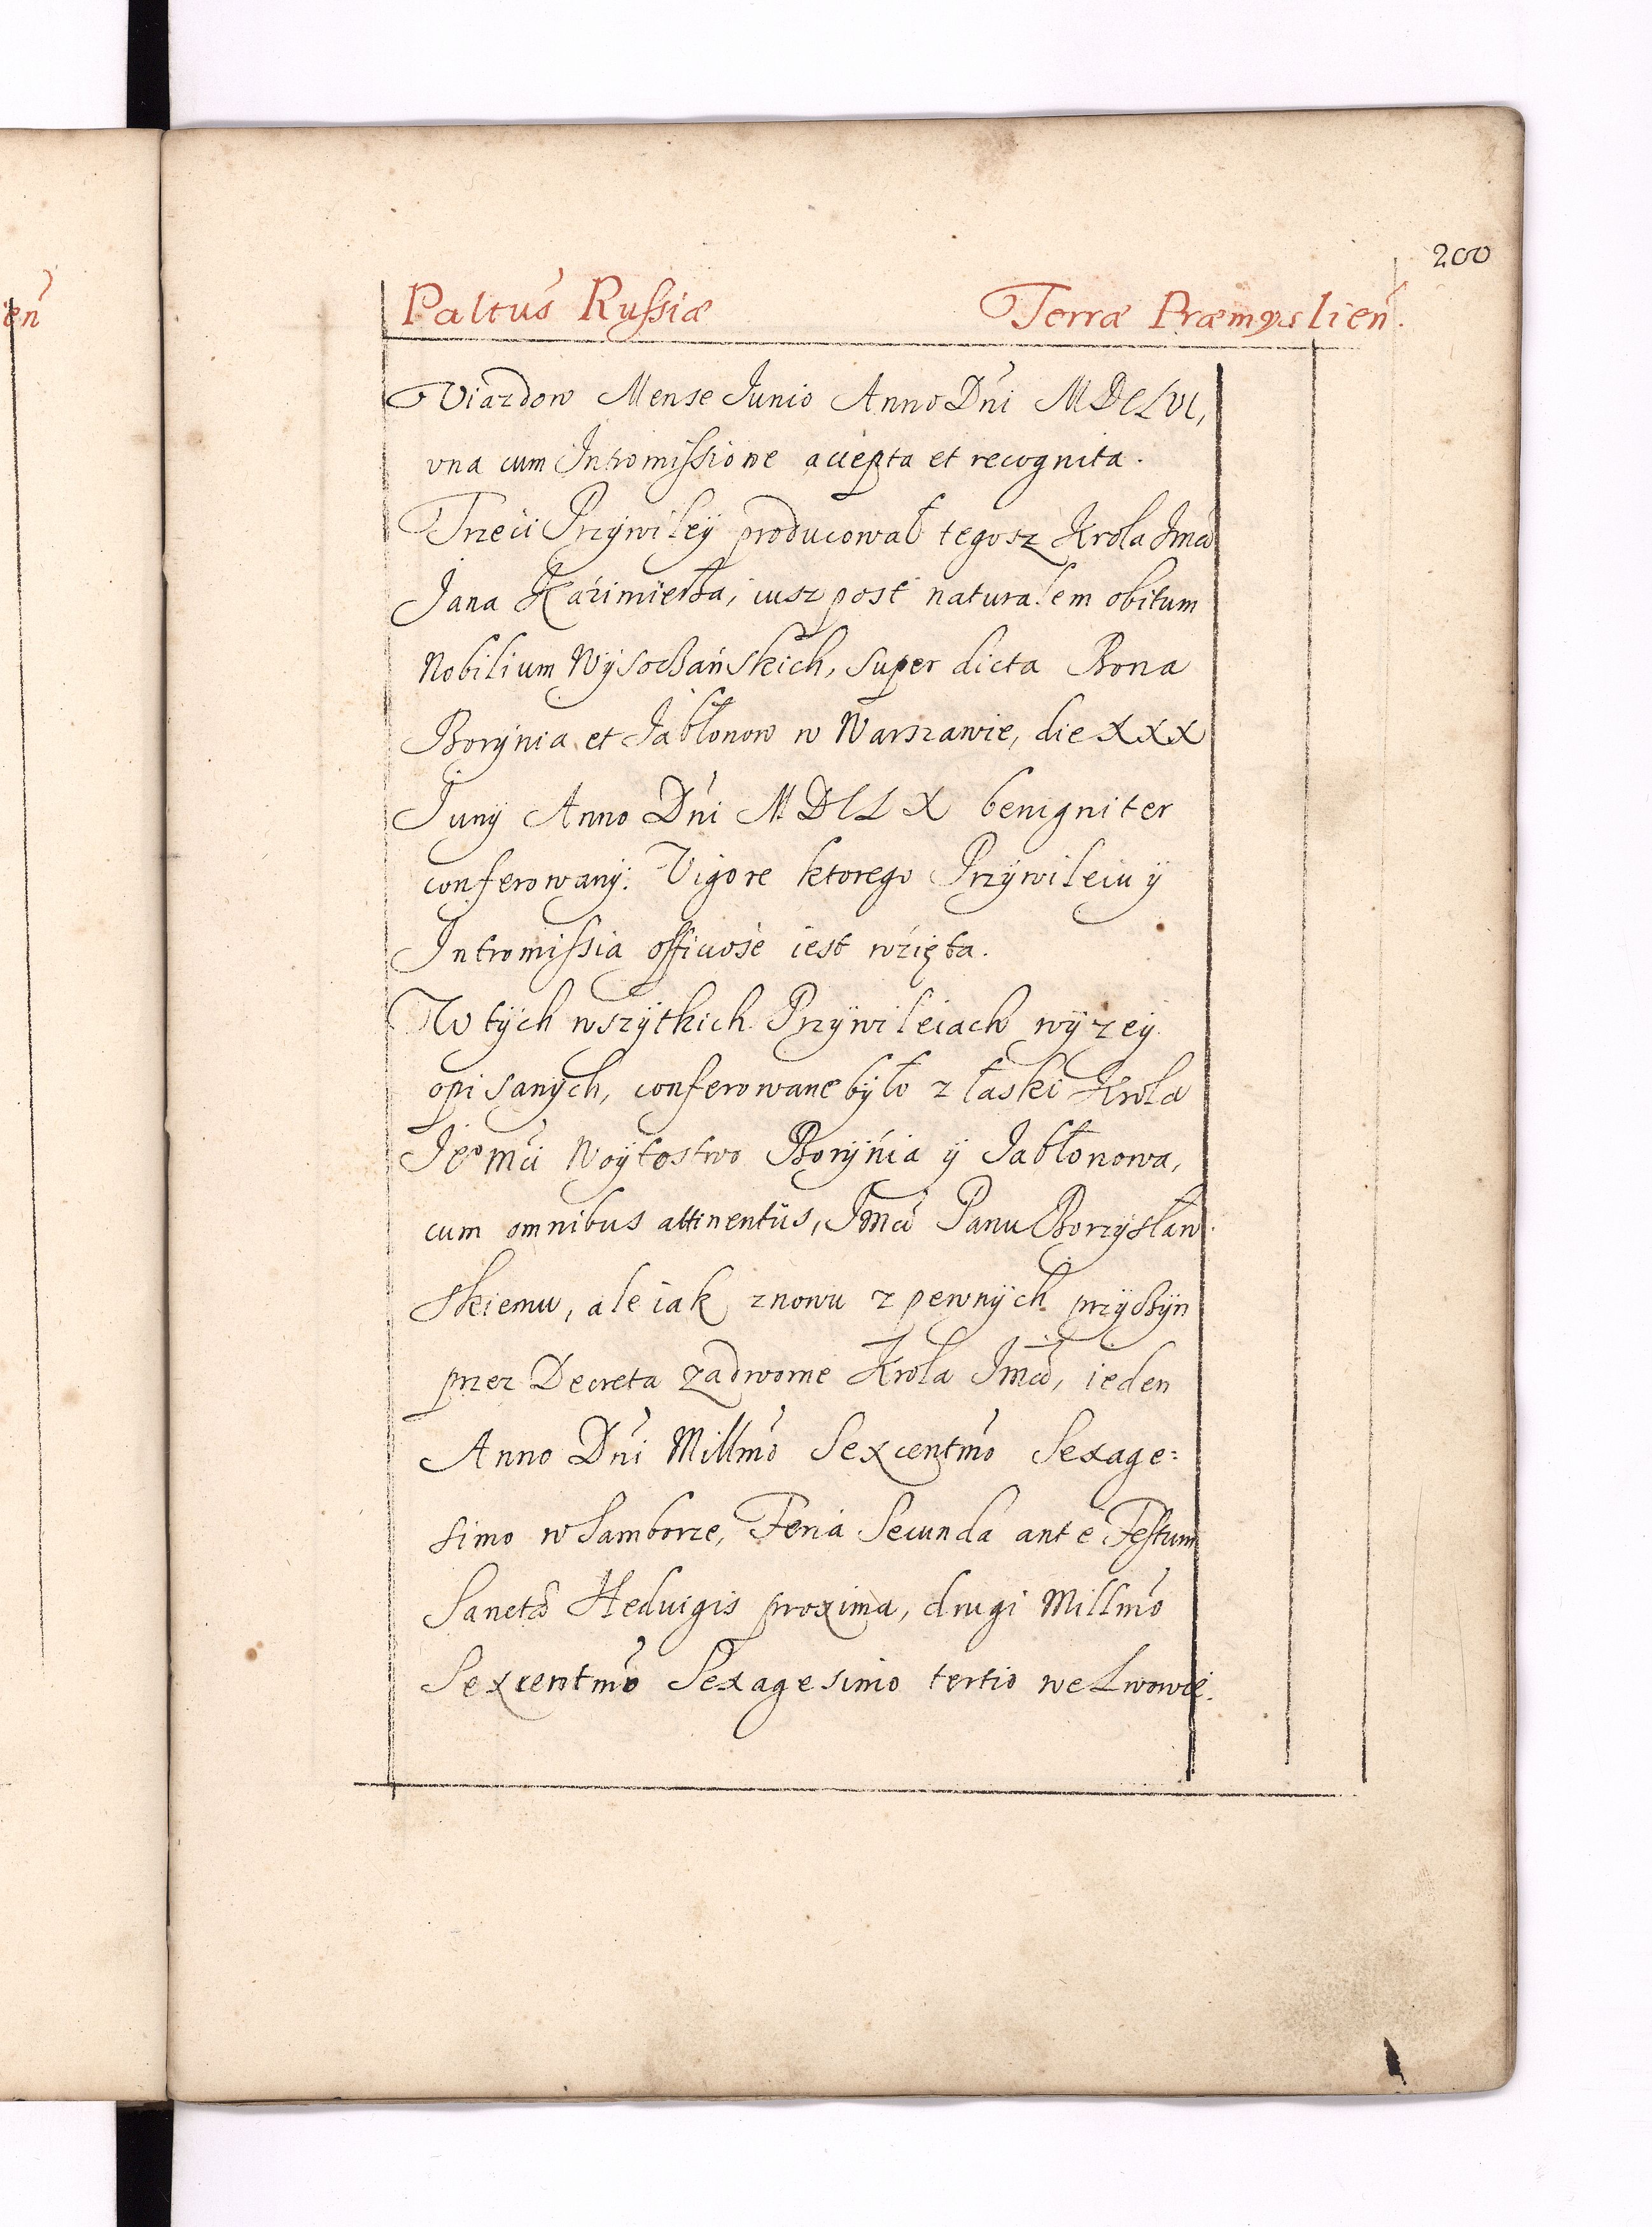 200
Paltus Russiæ Terræ Præmyslien.
Viazdow Mense Junio Anno Dni MDCLVI,
vna cum Intromissione accepta et recognita.
Trzeci Przÿwileÿ producował tegosz Krola Jmci
Jana Kazimierza, iusz post naturalem obitum
Nobilium Wÿsoczańskich, super dicta Bona
Borÿnia et Jabłonow w Warszawie, die XXX
Junÿ Anno Dni MDCLX benigniter
conferowanÿ: Vigore ktorego Przÿwileiu ÿ
Intromissia officiose iest wzięta.
W tÿch wszÿtkich Przÿwileiach wÿzeÿ
opisanÿch, conferowane bÿło z łaski Krola
Jeº Mci Woÿtostwo Borÿnia ÿ Jabłonowa,
cum omnibus attinentÿs, Jmci Panu Borzÿsław
skiemu, ale iak znowu z pewnÿch przÿczÿn
przez Decreta zadworne Krola Jmci, ieden
Anno Dni Millmo Sexcentmo Sexage=
simo w Samborze, Feria Secunda ante Festum
Sanctæ Heduigis proxima, drugi Millmo
Sexcentmo Sexagesimo tertio we Lwowie.
ien